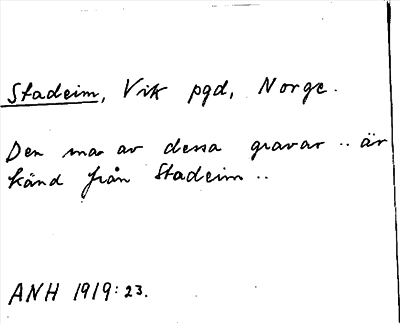 Stadeim, Vik pgd, Norge.
Den ma av dessa gravar .. är
känd från Stadeim ..
ANH 1919:23.